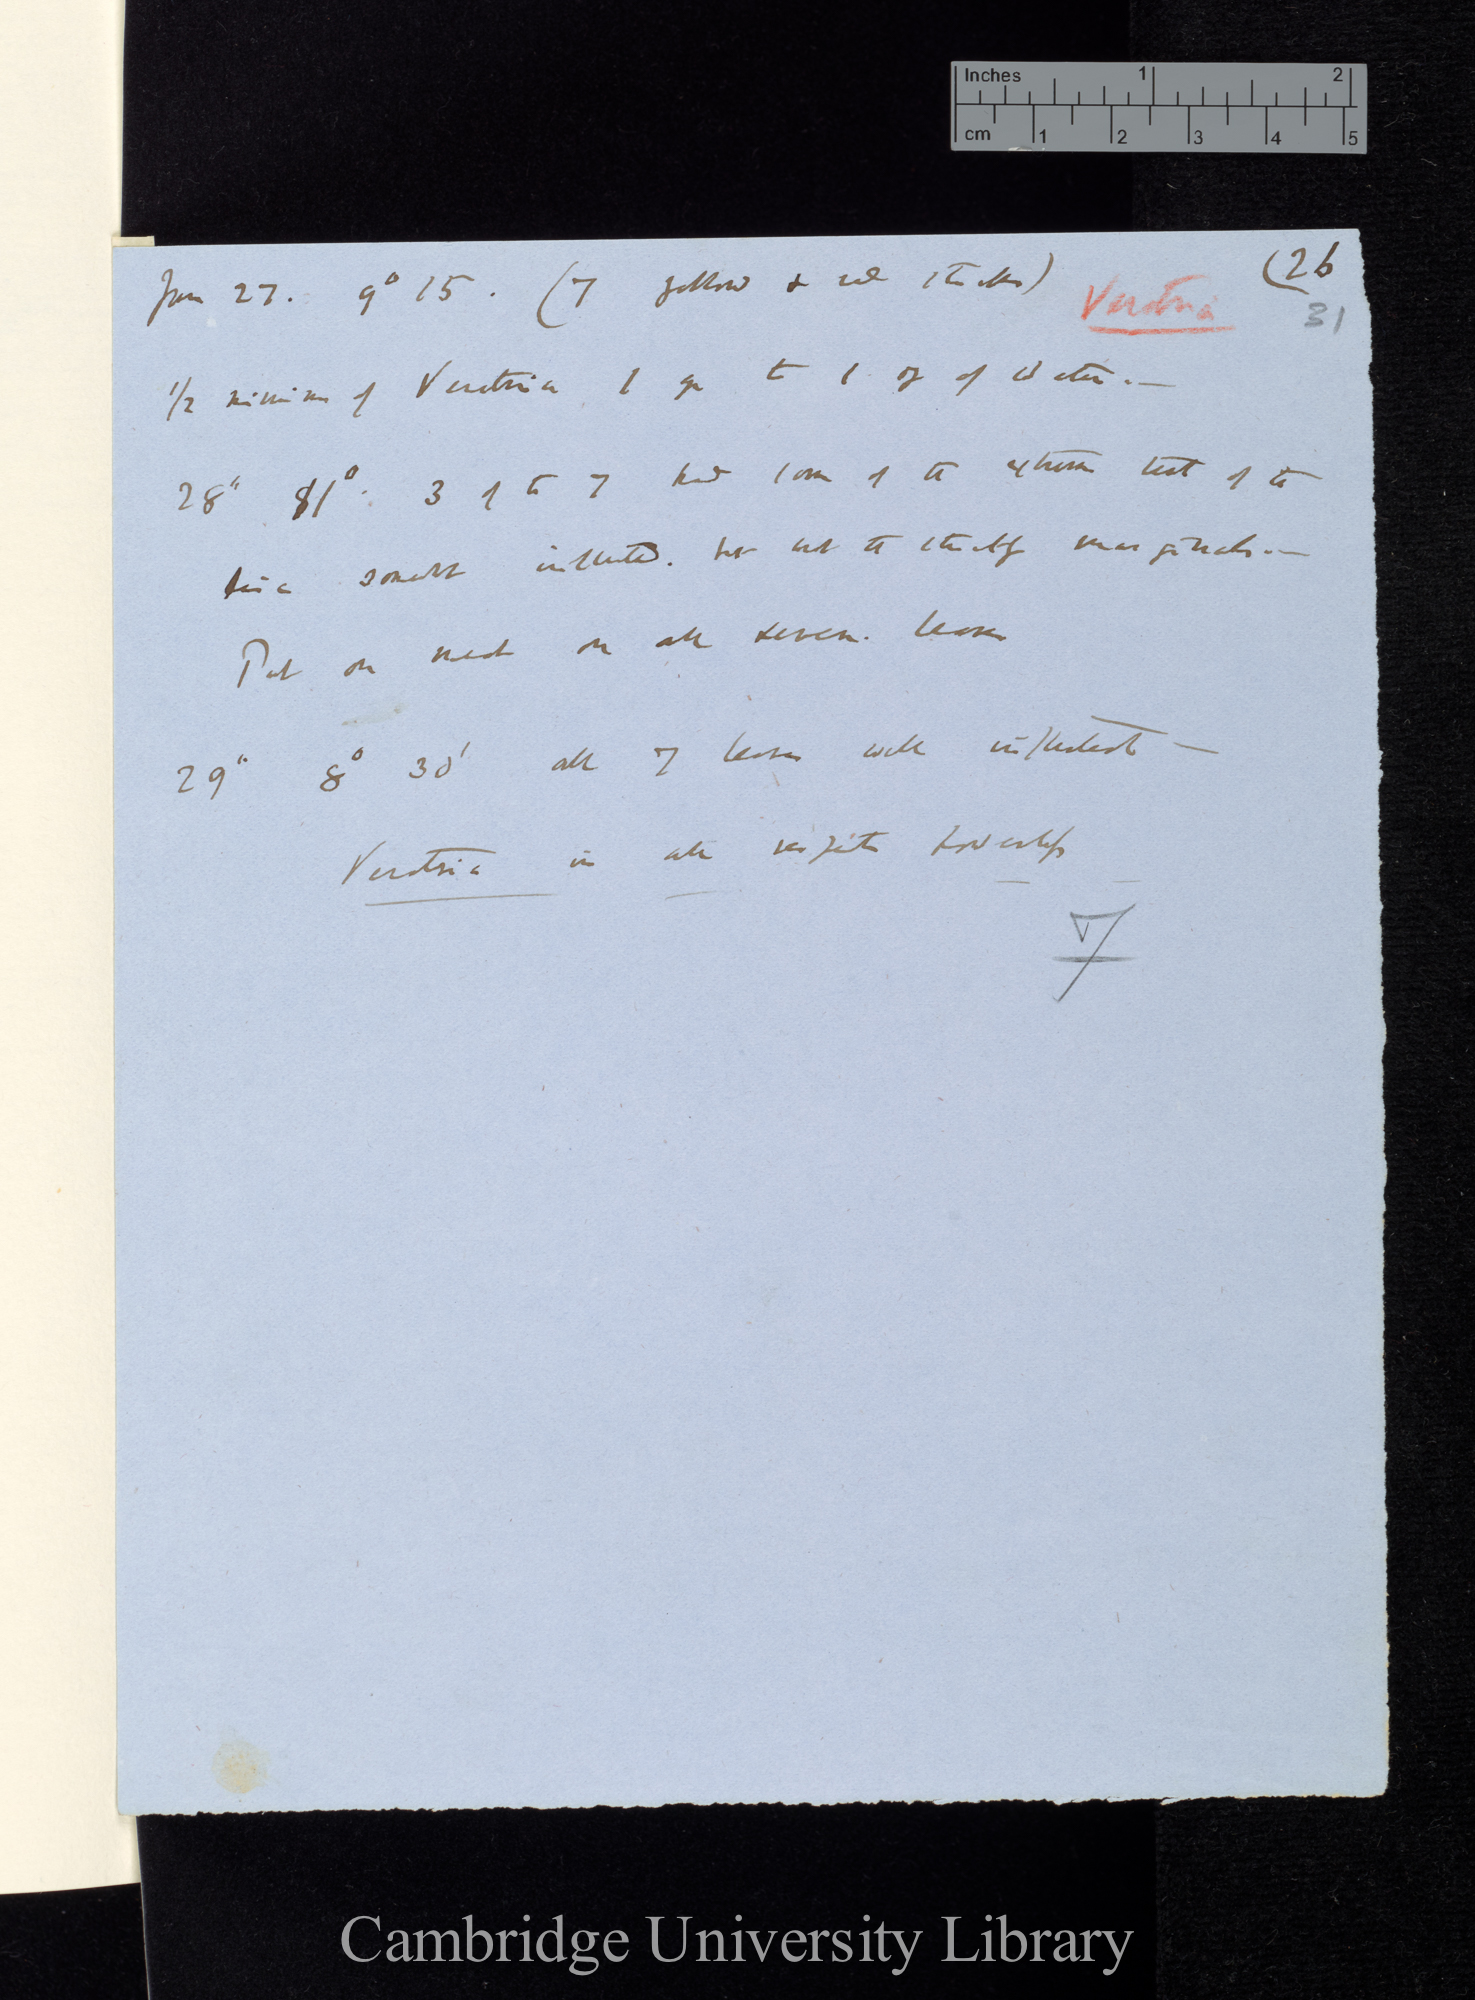 Inches 1 2
cm 1 2 3 4 5
(26
June 27. 9° 15'. (7 yellow & red sticks)
Veratria
31
1/2 minim of Veratria 1 gr to 1 oz of Water.—
28" 81°. 3 of the 7 had some of the extreme tent of the
somewhat inflected. but not the strictly marginals.—
Put on meat on all seven leaves
29" 8° 30' all 7 leaves well inflected—
Veratria in all
7
Cambridge University Library